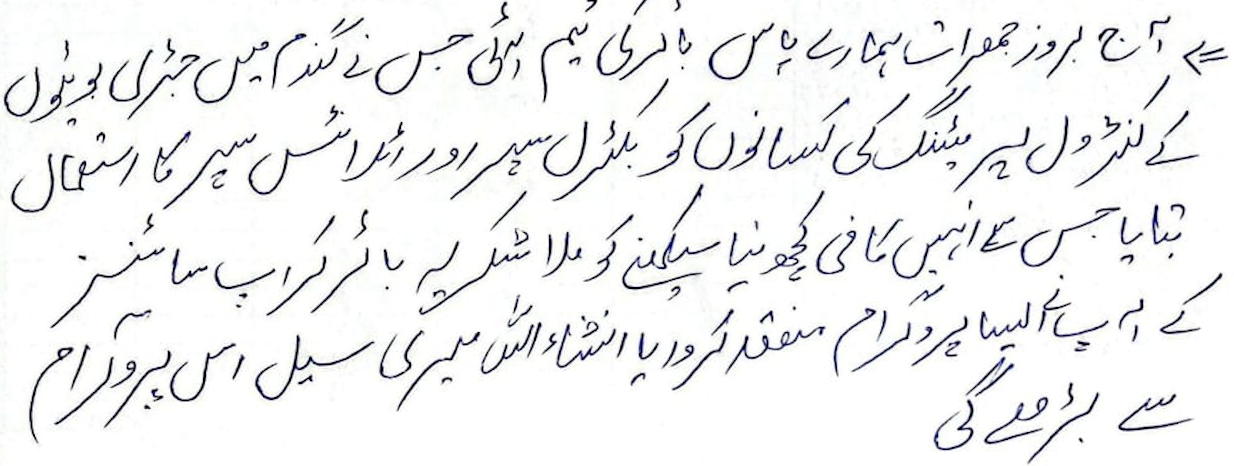 آج بروز جمعرات ہمارے پاس بائر کی ٹیم آئی جس نے گندم میں جڑی بوٹیوں
کے کنٹرول پر میٹنگ کی کسانوں کو بکٹرل سپر اور اٹلانٹس سپر کا استعمال
بتایا جس سے انہیں کافی کچھ نیا سیکھنے کو ملا شکریہ بائر کراپ سائنسز
کے آپ نے ایسا پروگرام منعقد کروایا انشاء اللہ میری سیل اس پروگرام
سے بڑھے گی